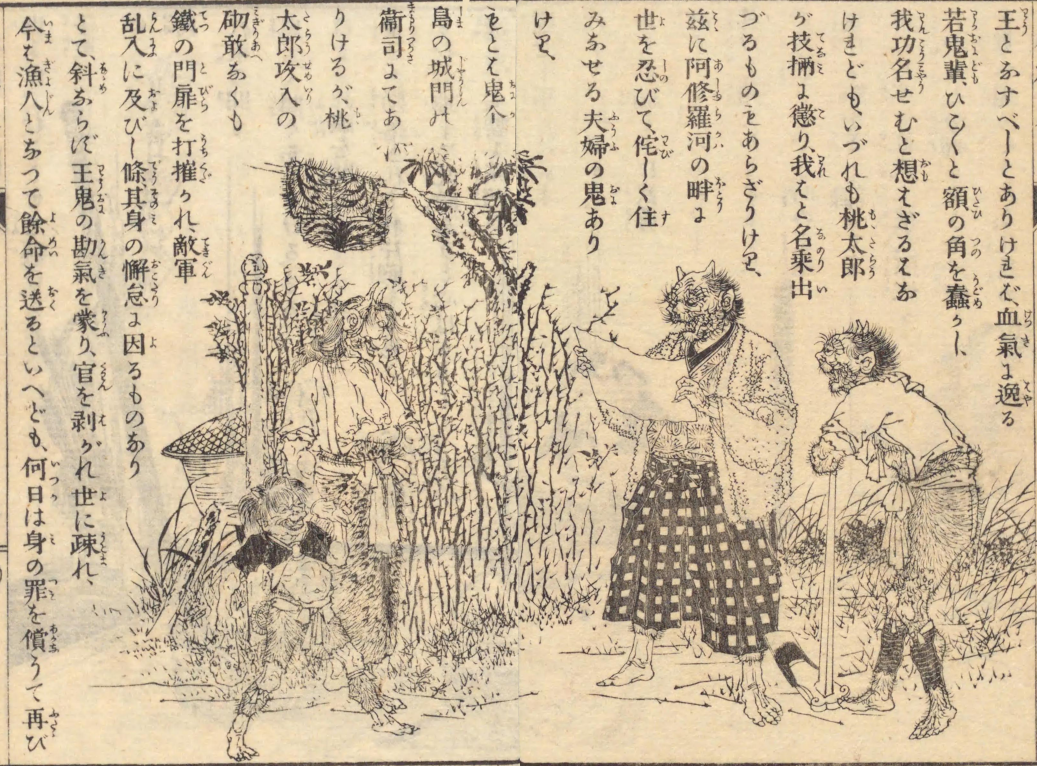 王となすべしとありければ、血氣に逸る
若鬼輩、ひこ〳〵と額の角を蠢かし、
我功名せむと想はざるはな
けれども、いづれも桃太郎
が技倆に懲り、我はと名乗出
づるものもあらざりけり、
茲に阿修羅河の畔に
世を忍びて、侘しく住
みなせる夫婦の鬼あり
けり、
もとは鬼个
島の城門の
衞司にてあ
りけるが、桃
太郎攻入の
砌敢なくも
鐵の門扉を打摧かれ、敵軍
乱入に及びし條、其身の懈怠に因るものなり
とて、斜ならず王鬼の勘氣を蒙り、官を剥がれ世に疎れ、
今は漁人となつて餘命を送るといへども、何日は身の罪を償うて再び